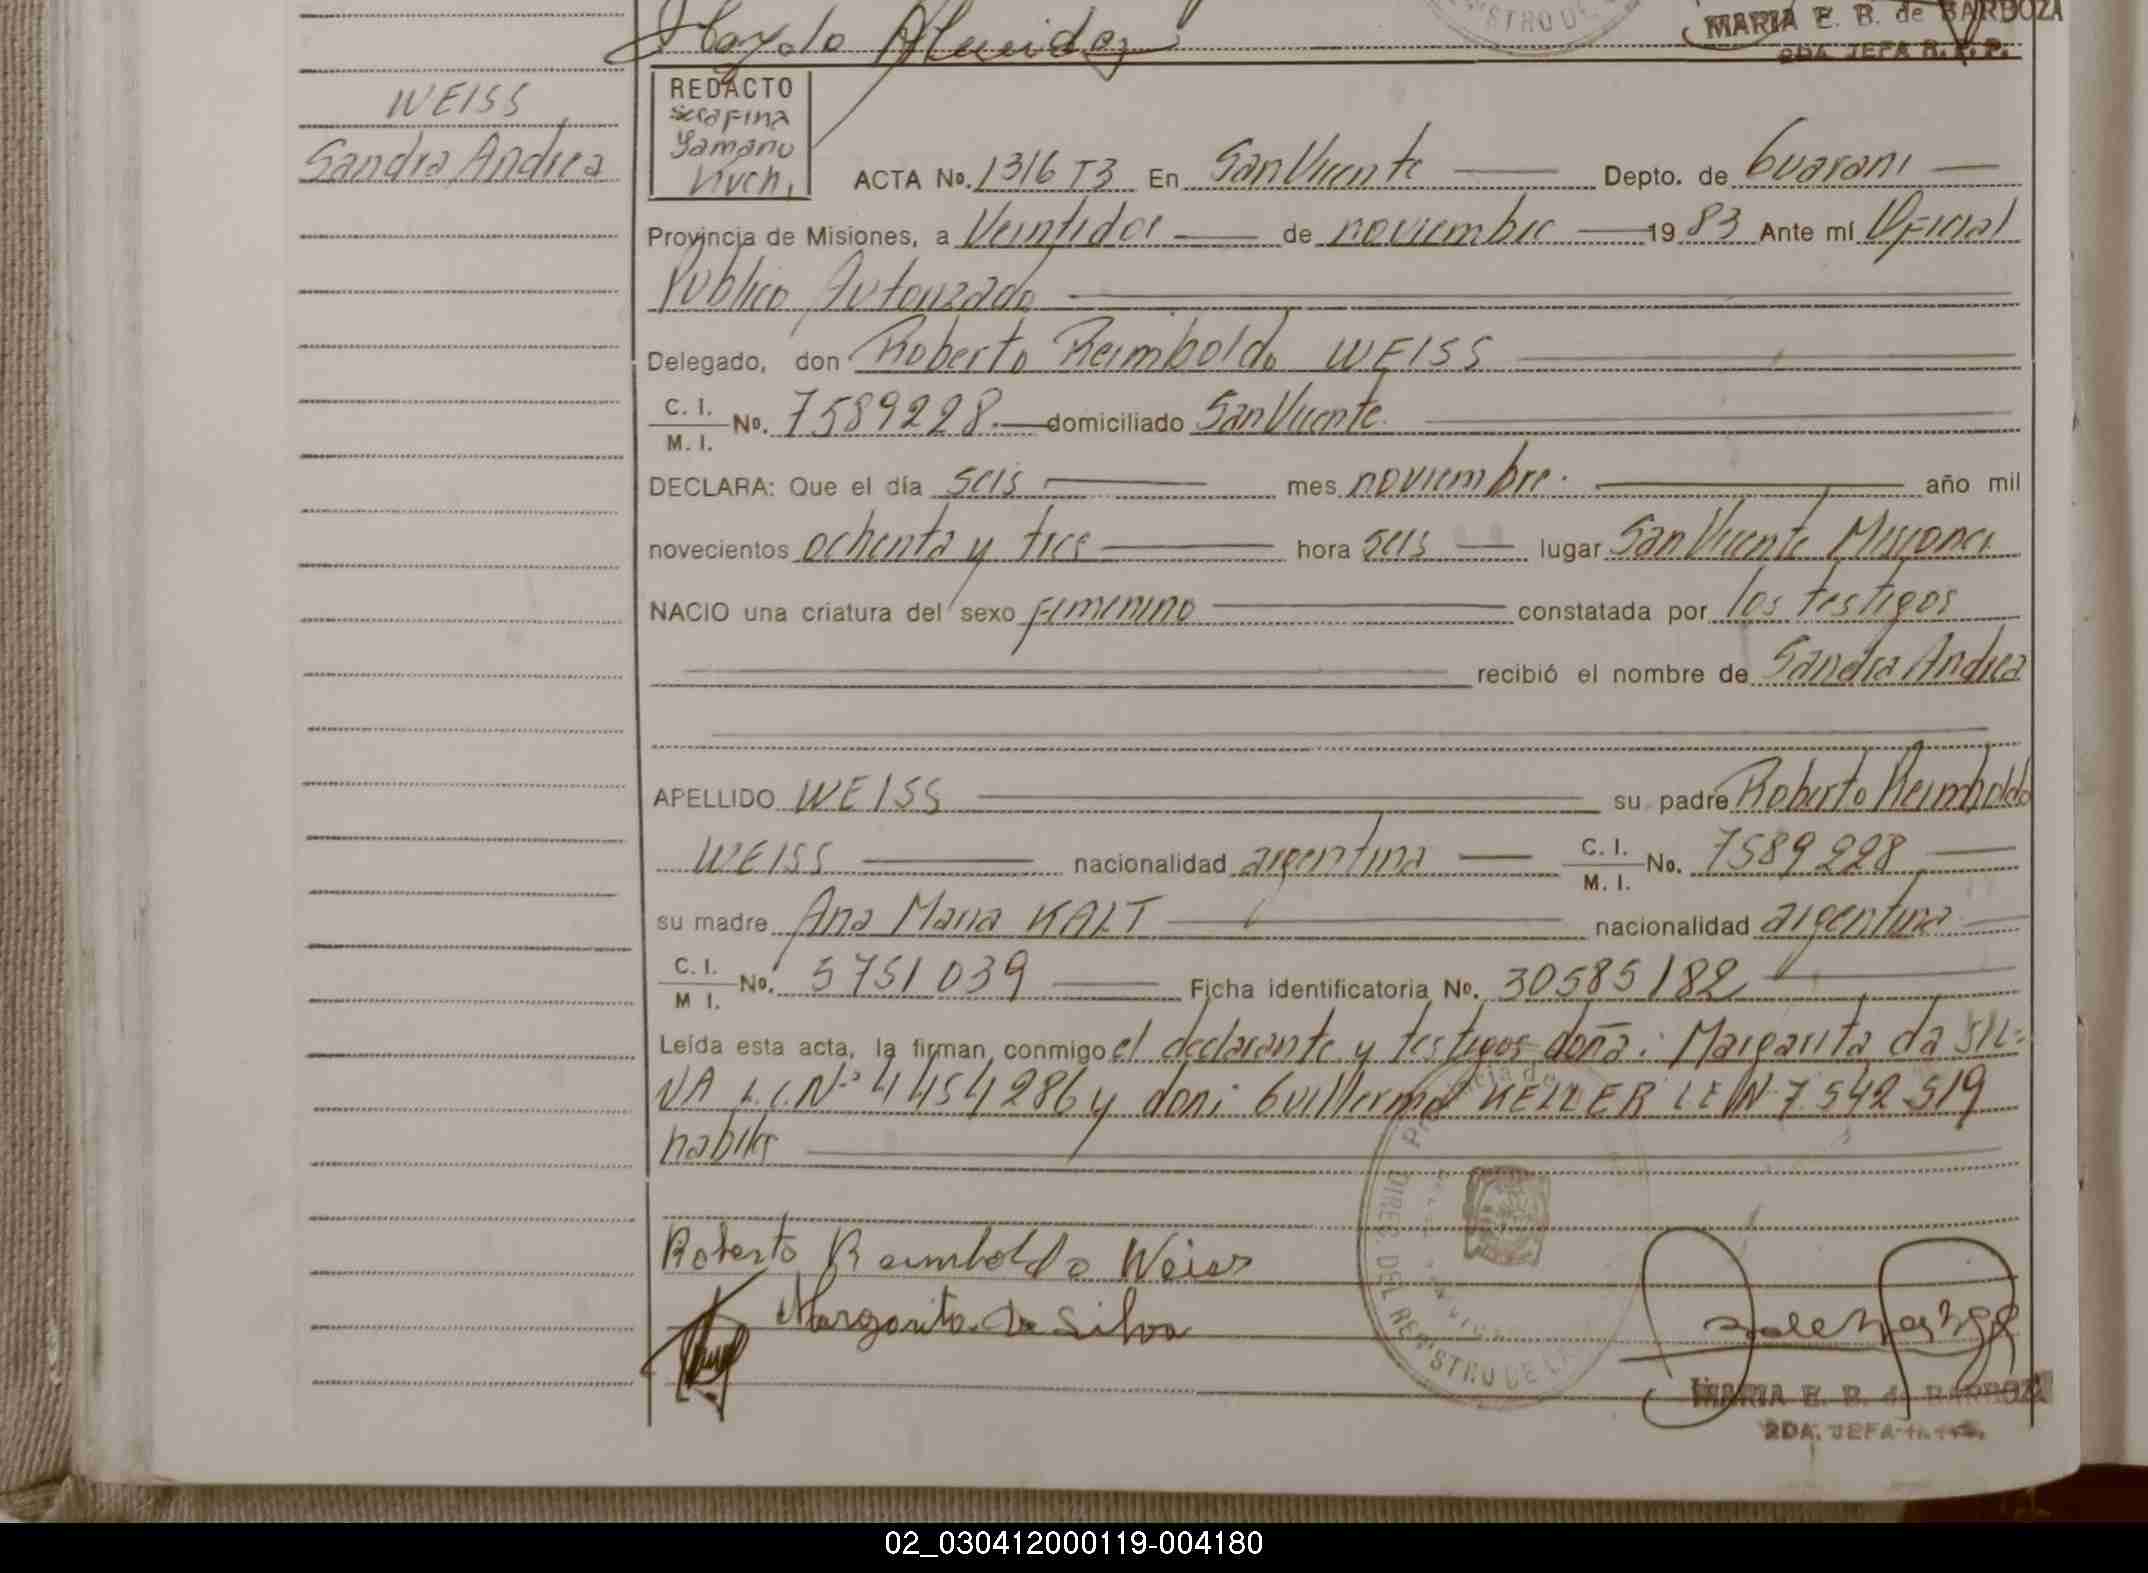 MARIA E. B. de BARBOZA
2DA. JEFA R. P. P.
WEISS
Sandra Andrea
REDACTO
Serafina
ACTA No. 1316 T3 En San Vicente Depto. de Guarani
Provincia de Misiones, a Veintidos de noviembre 19 83 Ante mí Oficial
Publico Autorizado
Delegado, don Roberto Reimboldo WEISS
C. I.
M. I. No. 7589228. domiciliado San Vicente.
DECLARA: Que el día seis mes noviembre. año mil
novecientos ochenta y tres hora seis lugar San Vicente Misiones
NACIO una criatura del sexo femenino constatada por los testigos
recibió el nombre de Sandra Andrea
APELLIDO WEISS su padre Roberto Reimboldo
WEISS nacionalidad argentina C. I. M. I. No. 7589228
su madre Ana Maria KALT nacionalidad argentina
C. I. M I. No. 5751039 Ficha identificatoria No. 30585182
Leída esta acta, la firman conmigo el declarante y testigos doña: Margarita da SIL-
VA L.C.Nº 4454286 y don: Guillermo KELLER LE Nº 7542519
habiles
Roberto Reimboldo Weiss
Margarita Da Silva
REGISTRO DE LA
MARIA E. B. de BARBOZA
2DA. JEFA
02_030412000119-004180